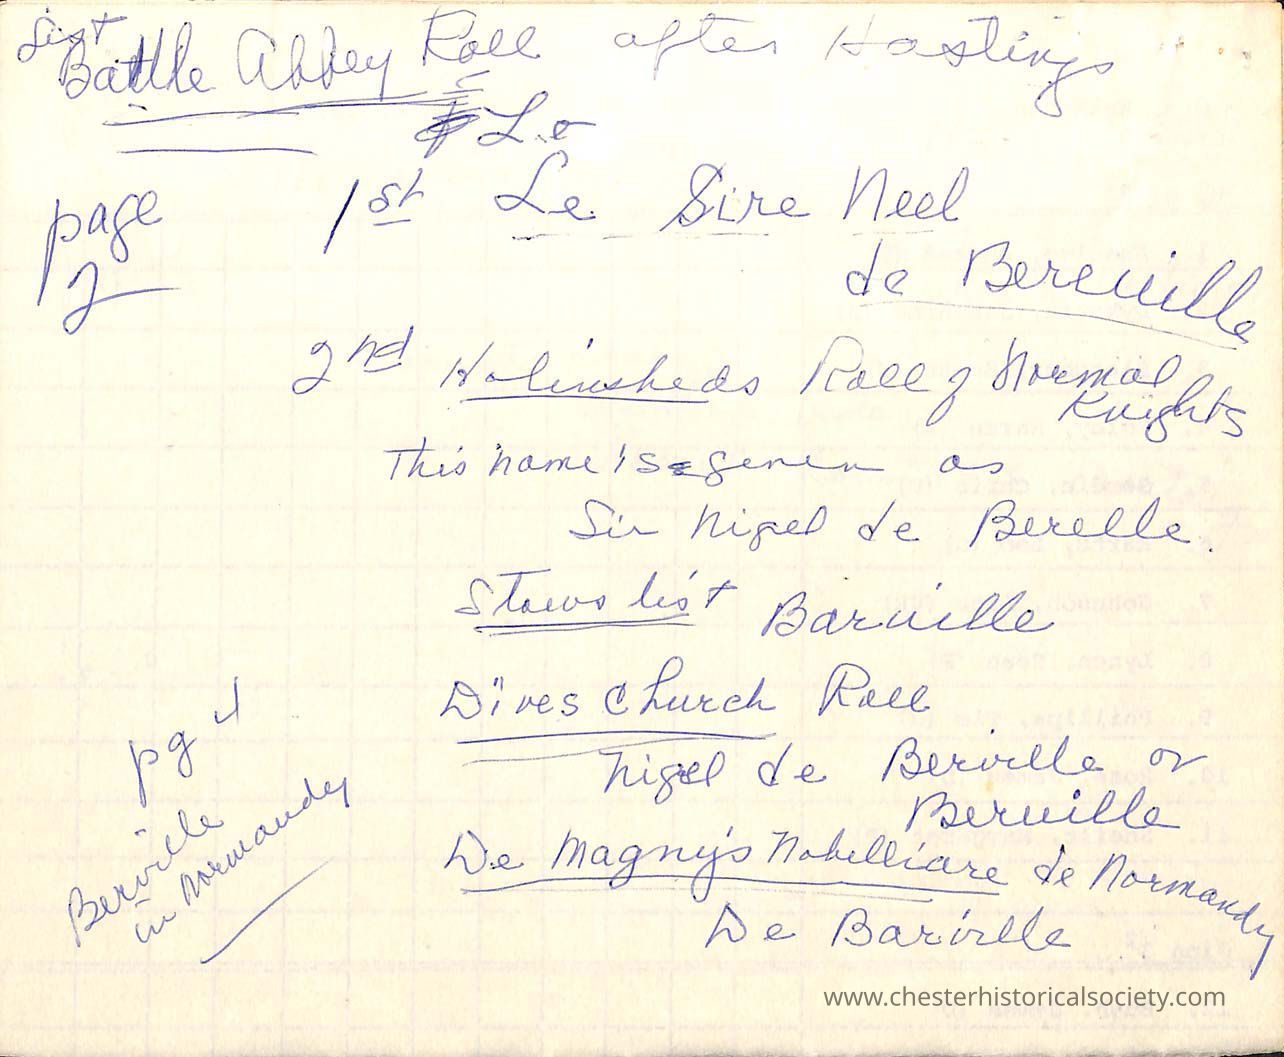 List
Battle Abbey Roll after Hastings
Le
page 2
1st Le Sire Neel
de Bereuille
2nd Holinsheds Roll of Normal
Knights
This name is given as
Sir Nigel de Berelle.
Stows list Baruille
Dives Church Roll
Nigel de Berville or
Beruille
De Magny's Nobelliare de Normandy
De Barville
pg 4
Berville
in Normandy
www.chesterhistoricalsociety.com